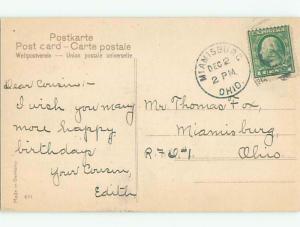 Postkarte
Post card – Carte postale
Weltpostverein — Union postale universelle
MIAMISBURG
DEC 2
2 PM
OHIO.
Dear Cousin:-
I wish you many
more happy
birthdays
Your Cousin,
Edith
Mr. Thomas Fox,
Miamisburg,
R.F.D. #1.
Ohio
Made in Germany